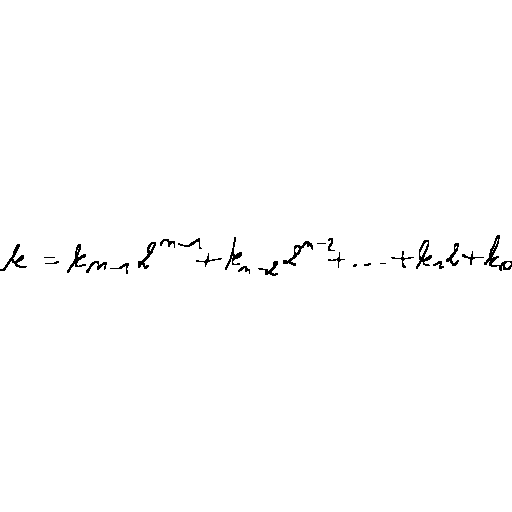 k = k_{n-1} 2^{n-1} + k_{n-2} 2^{n-2} + ... + k_1 2 + k_0